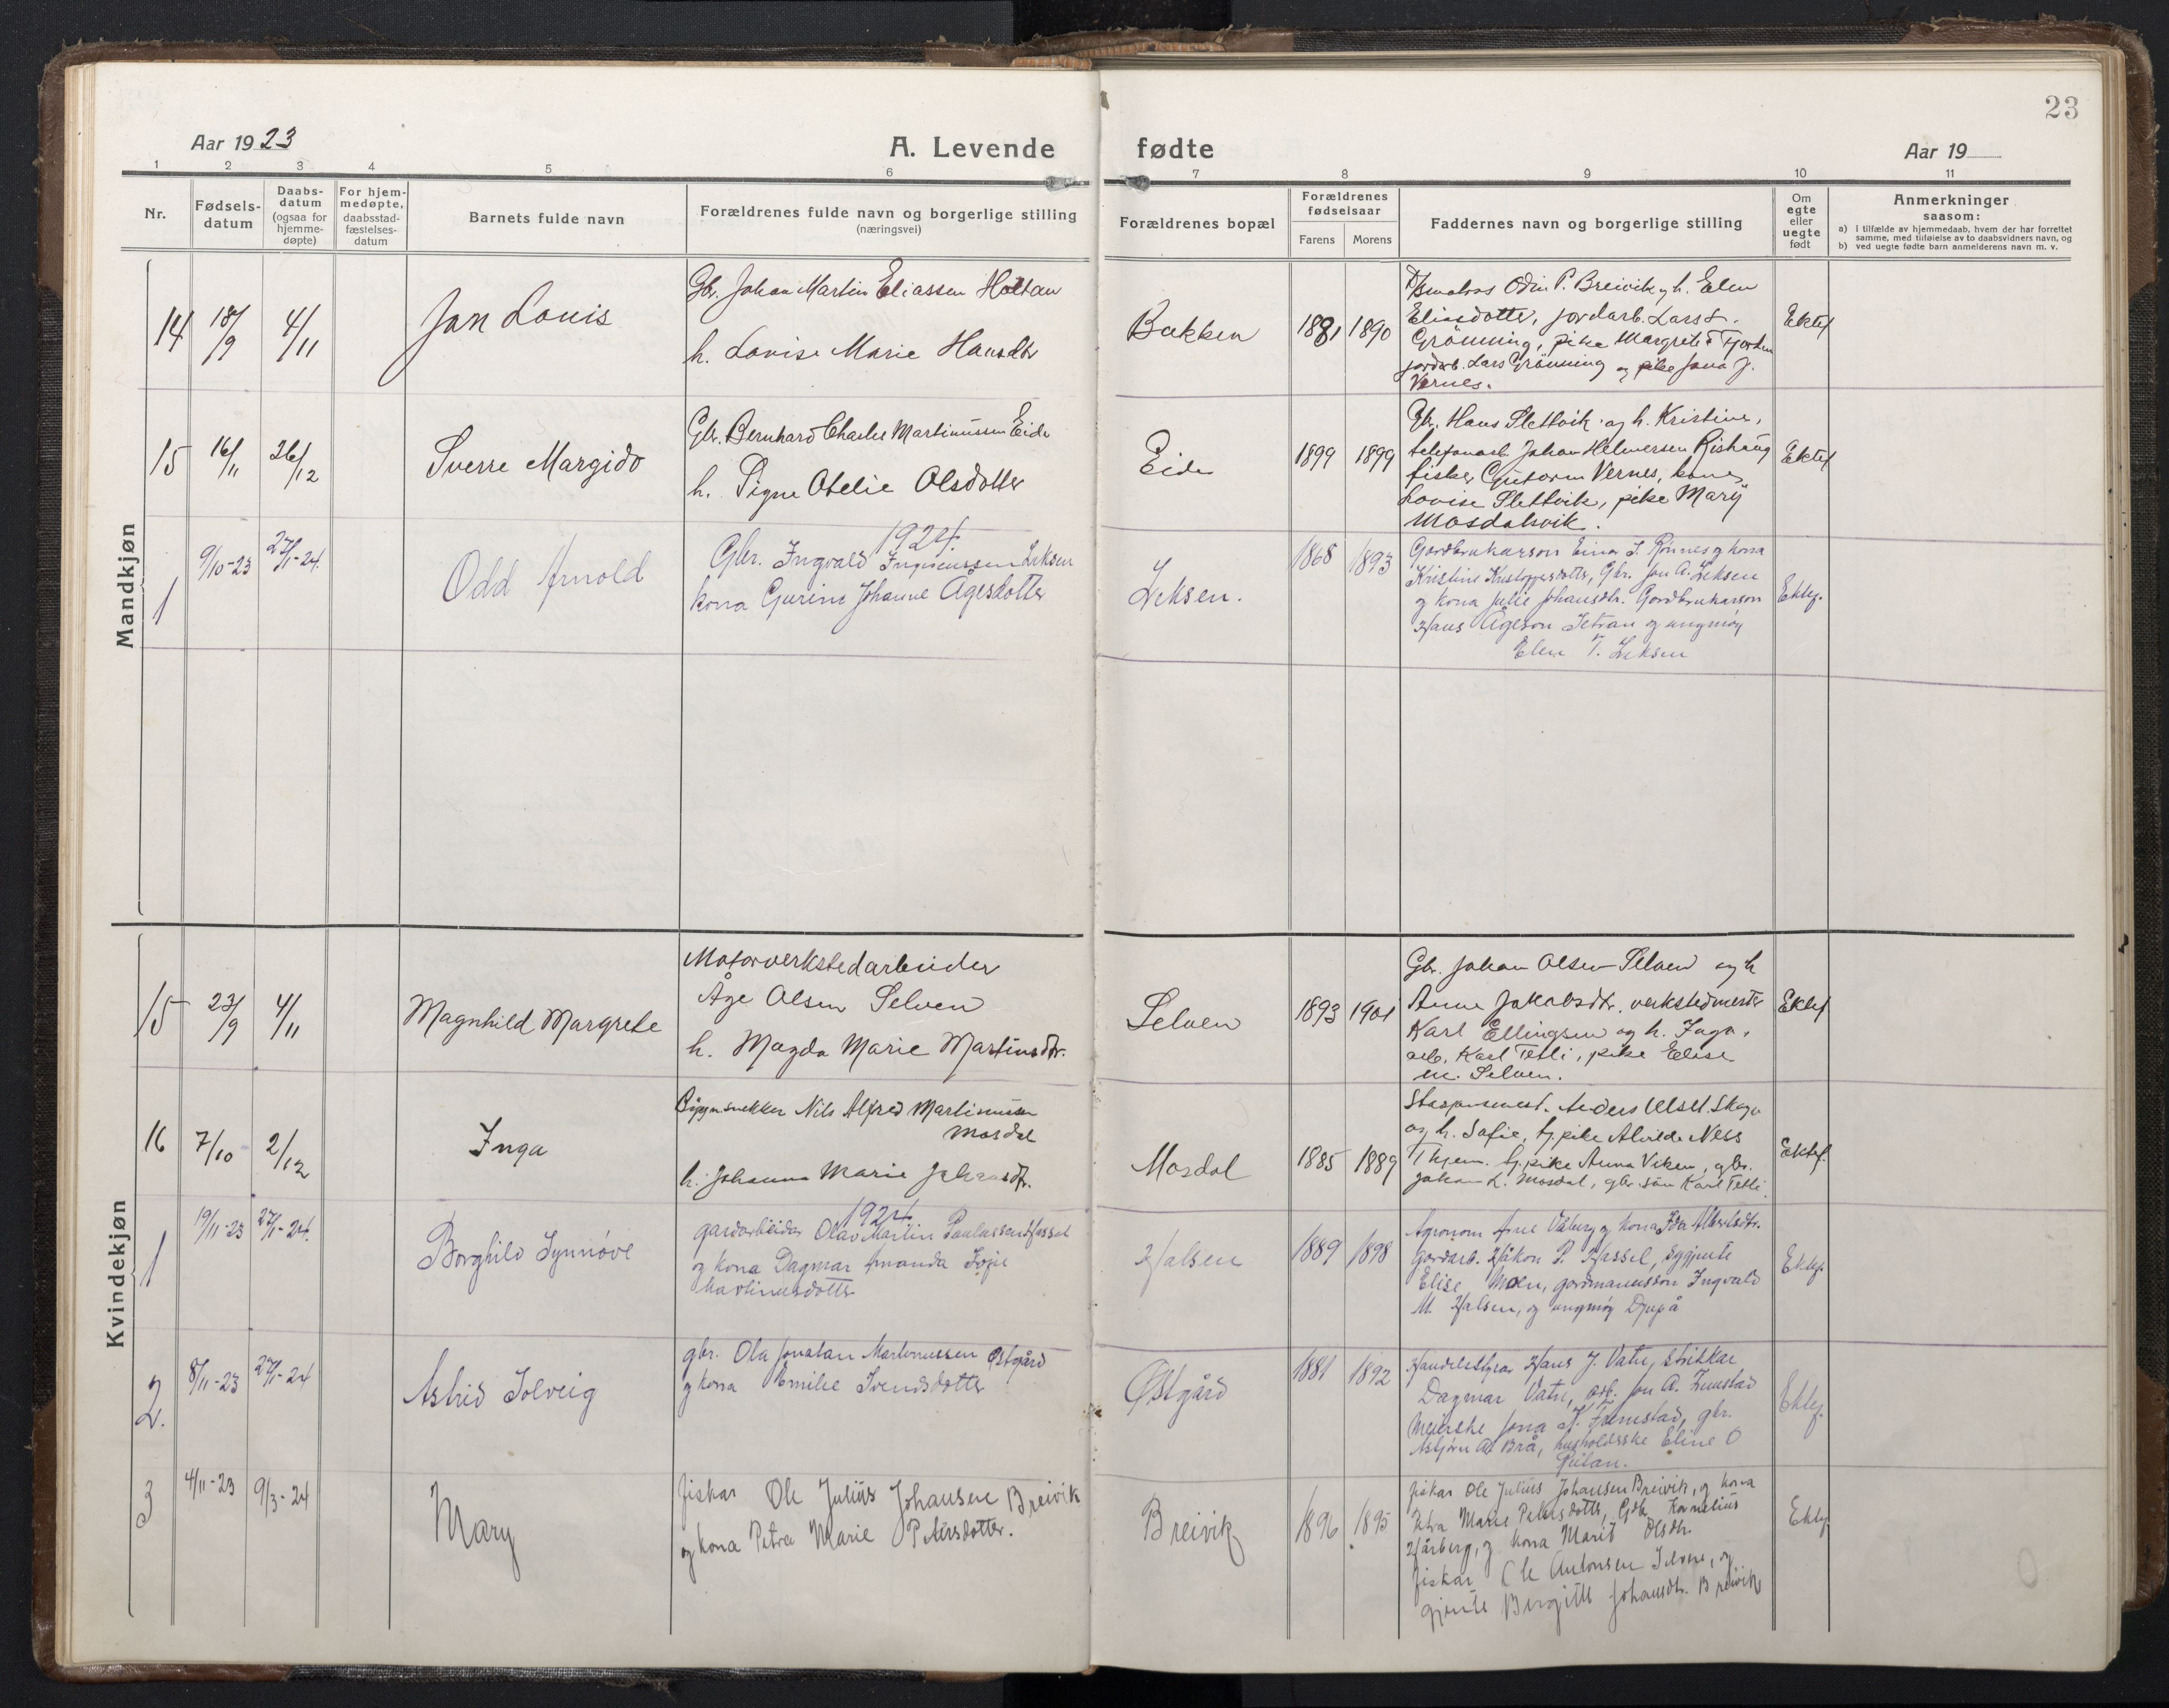 23
Aar 1923
A. Levende fødte
Aar 19
1 2 3 4 5 6 7 8 9 10 11
Nr.
Fødsels-
datum
Daabs-
datum
(ogsaa for
hjemme-
døpte)
For hjem-
medøpte,
daabsstad-
fæstelses-
datum
Barnets fulde navn
Forældrenes fulde navn og borgerlige stilling
(næringsvei)
Forældrenes bopæl
Forældrenes
fødselsaar
Farens Morens
Faddernes navn og borgerlige stilling
Om
egte
eller
uegte
født
Anmerkninger
saasom:
a) i tilfælde av hjemmedaab, hvem der har forrettet
samme, med tilføielse av to daabsvidners navn, og
b) ved uegte fødte barn anmelderens navn m. v.
Mandkjøn
14 18/9 4/11 Jan Louis
Gbr. Johan Martin Eliassen Holtan
h. Lovise Marie Hansdtr
Bakken 1881 1890
Odin P. Breivik og h. Elen
Eliasdotter, jordarb. Lars L.
Grönning, pike Margrete Fjorden
jordarb. Lars Grönning og pike Jona J.
Vernes.
Ektef
15 16/11 26/12 Sverre Margido
Gbr. Bernhard Charles Martinussen Eide
h. Signe Otelie Olsdotter
Eide 1899 1899
Gbr. Hans Slettvik og h. Kristine,
telefonarb. Johan Helmersen Rishaug
fisker Guttorm Vernes, kone
Lovise Slettvik, pike Mary
Mosdalsvik.
Ektef
1924.
1 9/10-23 27/1-24. Odd Arnold
Gbr. Ingvald Leksen
kona Gurine Johanne Ågesdotter
Leksen. 1868 1893
Gardbrukarson Einar J. Rønnes og kona
Kristine Kristoffersdotter, Gbr. Jon A. Leksen
og kona Julie Johansdtr. Gardbrukarson
Hans Ågeson Setran og ungmøy
Elen T. Leksen
Ektef.
Kvindekjøn
15 23/9 4/11 Magnhild Margrete
Motorverkstedarbeider
Åge Olsen Selven
h. Magda Marie Martinsdtr.
Selven 1893 1901
Gbr. Johan Olsen Selven og h
Anne Jakobsdtr. verkstedmester
Karl Ellingsen og h. Inga,
arb. Karl Tetli, pike Elise
M. Selven.
Ektef
16 7/10 2/12 Inga
Bygnsnekker Nils Alfred Martinussen
Mosdal
h. Johanna Marie Johansdtr.
Mosdal 1885 1889
Stasjonsmest. Anders Ulset Skage
og h. Sofie, tj. pike Alvilde Ness
Thjem. tj. pike Anna Viken, gbr.
Johan L. Mosdal, gbr. sön Karl Tetli.
Ektef.
1924
1 19/11-23 27/1-24. Borghild Synnöve
gardarbeidar Olav Martin Paulussen Hassel
og kona Dagmar Amanda Sofie
Martinusdotter
Halsen 1889 1898
Agronom Arne Våberg og kona Ida Albertsdtr.
Gardarb. Håkon P. Hassel, sygjente
Elise Moen, gardmannsson Ingvald
M. Halsen, og ungmøy Djupå
Ektef.
2. 8/11-23 27/1-24 Astrid Solveig
gbr. Ola Jonatan Martinussen Østgård
og kona Emilie Svendsdotter
Østgård 1881 1892
Handelsstyrar Hans J. Vatn, strikkar
Dagmar Vatn, arb. Jon A.
Meierske Jona gbr.
Asbjørn A. Brå, husholderske Eline O
Ektef.
3 4/11-23 9/3-24 Mary
fiskar Ole Julius Johansen Breivik
og kona Petra Marie Petersdotter.
Breivik 1896 1895
fiskar Ole Julius Johansen Breivik, og kona
Petra Marie Petersdotter, Gdb. Kornelius
Hårberg, og kona Marit Olsdtr.
fiskar Ole Antonsen Selven, og
gjente Bergitte Johansdtr. Breivik
Ektef